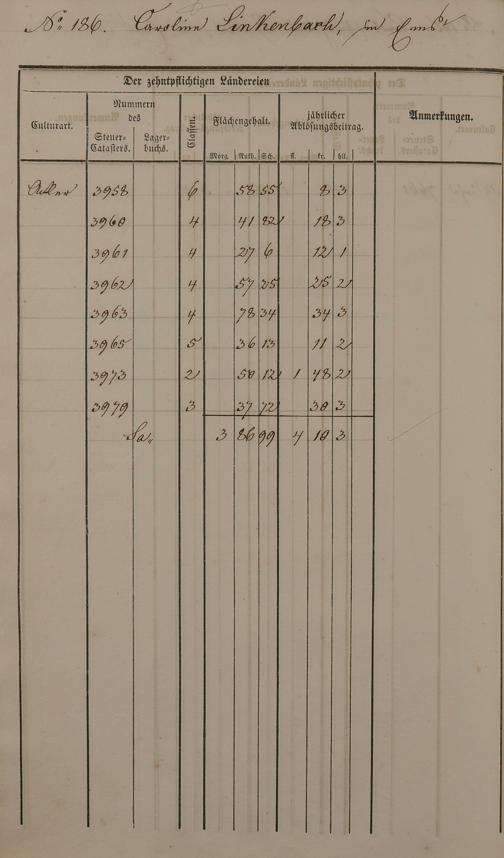 No. 186. Caroline Linkenbach, in Ems
Der zehntpflichtigen Ländereien
Culturart.
Nummern des
Steuer-Catasters.
Lager-buchs.
Classen.
Flächengehalt.
Morg. Ruth. Sch.
jährlicher Ablösungsbeitrag.
fl. kr. hll.
Anmerkungen.
Acker 3958 6 58 55 8 3
3960 4 41 82 18 3
3961 4 27 6 12 1
3962 4 57 25 25 2
3963 4 78 34 34 3
3965 5 36 13 11 2
3973 2 50 12 1 48 2
3979 3 37 72 30 3
Sa. 3 86 99 4 10 3